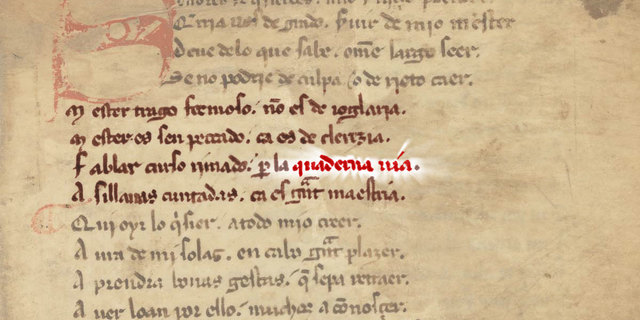 Qrria us de grado. seruir de mio mester
Deue delo que sabe. ome largo seer.
Se no podrie de culpa. o de rieto caer.
M ester trago fermoso. nõ es de ioglaria.
M ester es sen peccado. ca es de clerezia.
F ablar curso rimado. ꝑ la quaderna uia.
A sillauas cuntadas. ca es grãt maestria.
Qui oyr lo q̃sier. a todo mio creer.
A ura de mi solaz. en cabo grãt plazer.
A prendra bonas gestas. q̃ sepa retraer.
A uer loan por ello. muchos a cõnoscer.